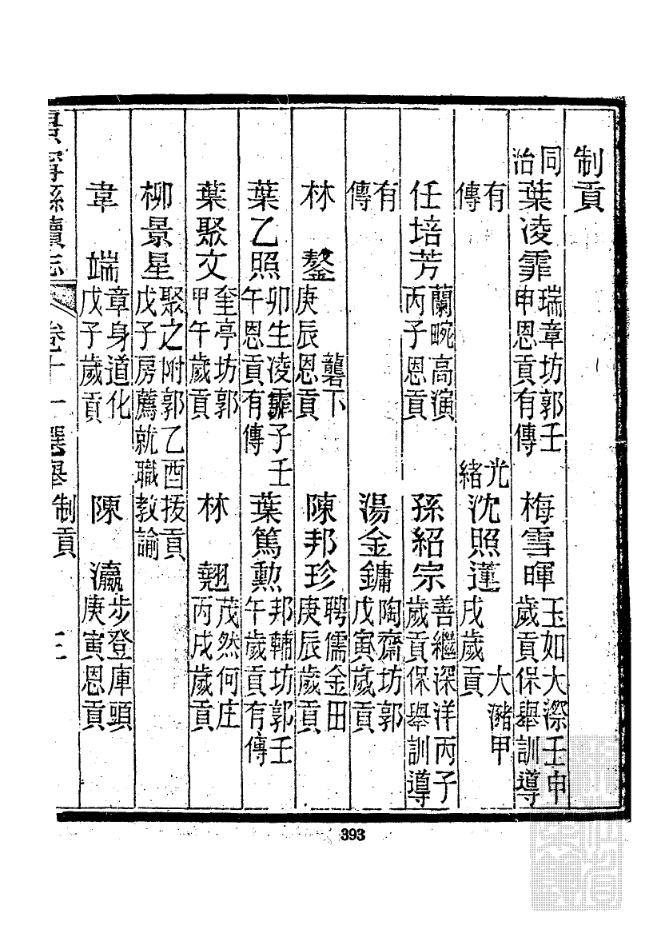 制貢
同治 葉凌霏 瑞章坊郭壬申恩貢有傳 梅雪暉 玉如大漈壬申歲貢保舉訓導
有傳 光緒 沈照蓮 大瀦甲戌歲貢
任培芳 蘭畹高演丙子恩貢 孫紹宗 善繼深洋丙子歲貢保舉訓導
有傳 湯金鏞 陶齋坊郭戊寅歲貢
林鏊 礱下庚辰恩貢 陳邦珍 聘儒金田庚辰歲貢
葉乙照 卯生凌霏子壬午恩貢有傳 葉篤勲 邦輔坊郭壬午歲貢有傳
葉聚文 奎亭坊郭甲午歲貢 林翹 茂然何庄丙戌歲貢
柳景星 聚之附郭乙酉拔貢戊子房薦就職教諭
韋端 章身道化戊子歲貢 陳瀛 步登庫頭庚寅恩貢
景寧縣續志 卷十一 選舉 制貢 三
393